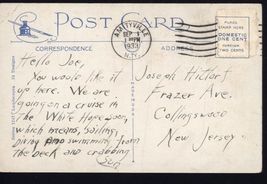 POST CARD
AMITYVILLE
SEP
PM
1933
N.Y.
PLACE
STAMP HERE
DOMESTIC
ONE CENT
FOREIGN
TWO CENTS
CORRESPONDENCE
ADDRESS
Hello Joe,
You would like it
up here. We are
going on a cruise in
The White Hope soon,
which means, sailing,
and swimming from
the deck and crabbing
Joseph Hictort
Frazer Ave.
Collingswood
New Jersey.